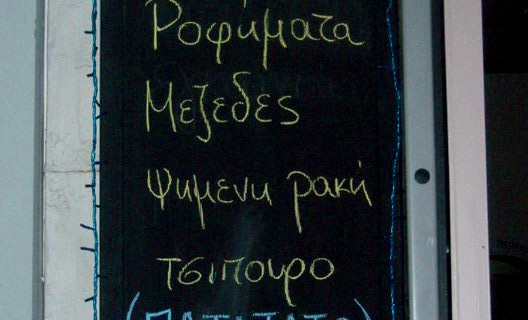 Ροφήματα
Μεζεδες
Ψημενη ρακή
τσιπουρο